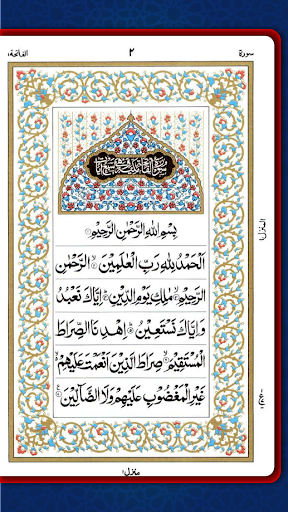 سورة
٢
الفاتحة ١
بِسْمِ اللهِ الرَّحْمٰنِ الرَّحِيْمِ
اَلْحَمْدُ لِلّٰهِ رَبِّ الْعٰلَمِيْنَ ۙ الرَّحْمٰنِ
الرَّحِيْمِ ۙ مٰلِكِ يَوْمِ الدِّيْنِ ؕ اِيَّاكَ نَعْبُدُ
وَاِيَّاكَ نَسْتَعِيْنُ ؕ اِهْدِنَا الصِّرَاطَ
الْمُسْتَقِيْمَ ۙ صِرَاطَ الَّذِيْنَ اَنْعَمْتَ عَلَيْهِمْ
غَيْرِ الْمَغْضُوْبِ عَلَيْهِمْ وَلَا الضَّآلِّيْنَ
منزل ١